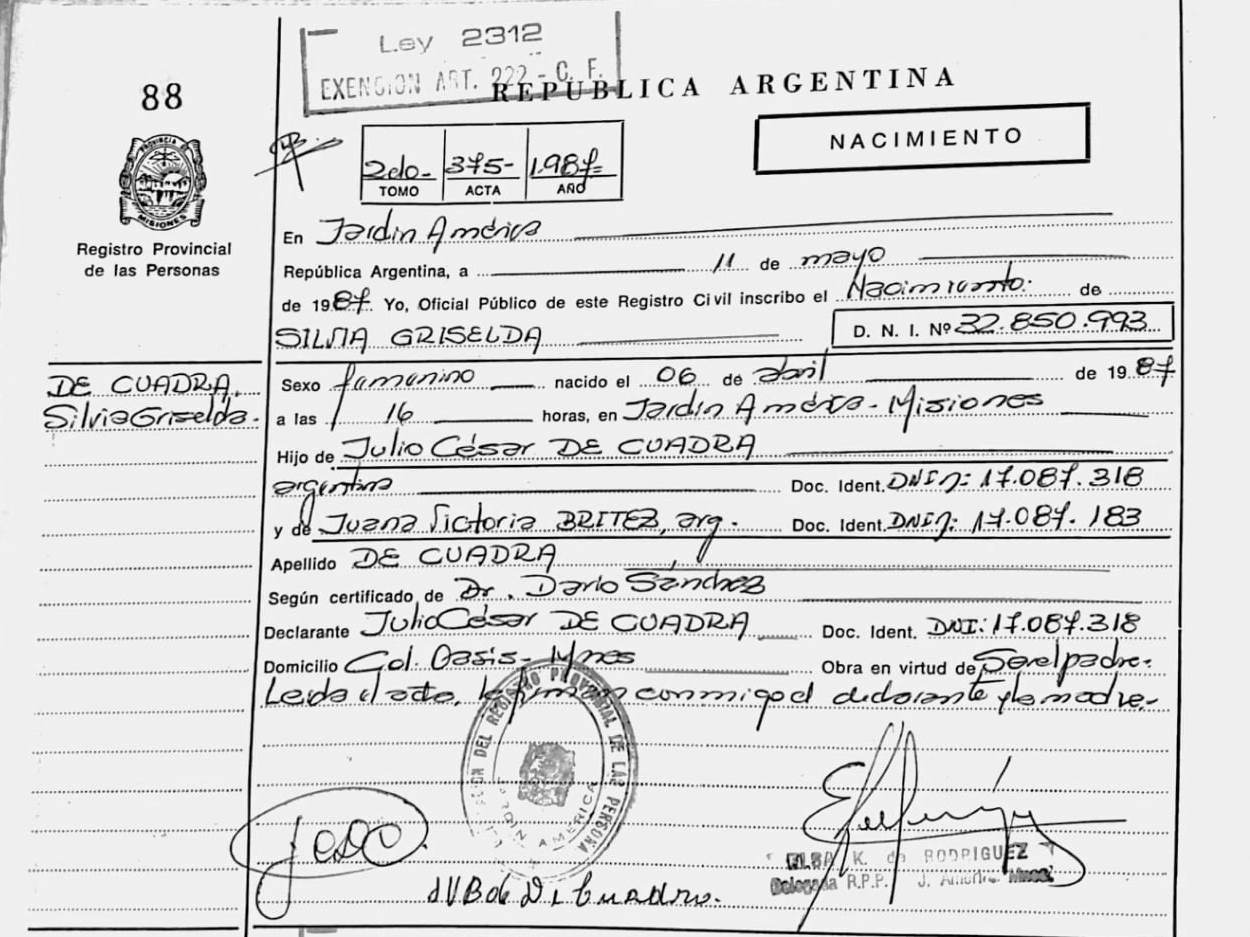 Ley 2312
EXENCION ART. 222 - C. F.
88
REPUBLICA ARGENTINA
NACIMIENTO
2do- 375- 1.987=
TOMO ACTA AÑO
PROVINCIA MISIONES
Registro Provincial
de las Personas
En Jardin América
República Argentina, a 11 de mayo
de 1987 Yo, Oficial Público de este Registro Civil inscribo el Nacimiento. de
SILVIA GRISELDA D. N. I. Nº 32.850.993
DE CUADRA,
Silvia Griselda.-
Sexo femenino nacido el 06 de abril de 1987
a las 16 horas, en Jardin América - Misiones
Hijo de Julio César DE CUADRA
argentino Doc. Ident. DNI Nº: 17.087.318
y de Juana Victoria BRITEZ, arg. Doc. Ident. DNI Nº: 17.087.183
Apellido DE CUADRA
Según certificado de Dr. Dario Sánchez
Declarante Julio César DE CUADRA Doc. Ident. DNI: 17.087.318
Domicilio Col. Oasis - Mnes Obra en virtud de Ser el padre.-
Leida el acta, la firman conmigo el declarante y la madre.-
DEL REGISTRO PROVINCIAL DE LAS PERSONAS
JARDIN AMERICA
JVB de De Cuadra.
ELSA K. de RODRIGUEZ
Delegada R.P.P. J. América Mnes.